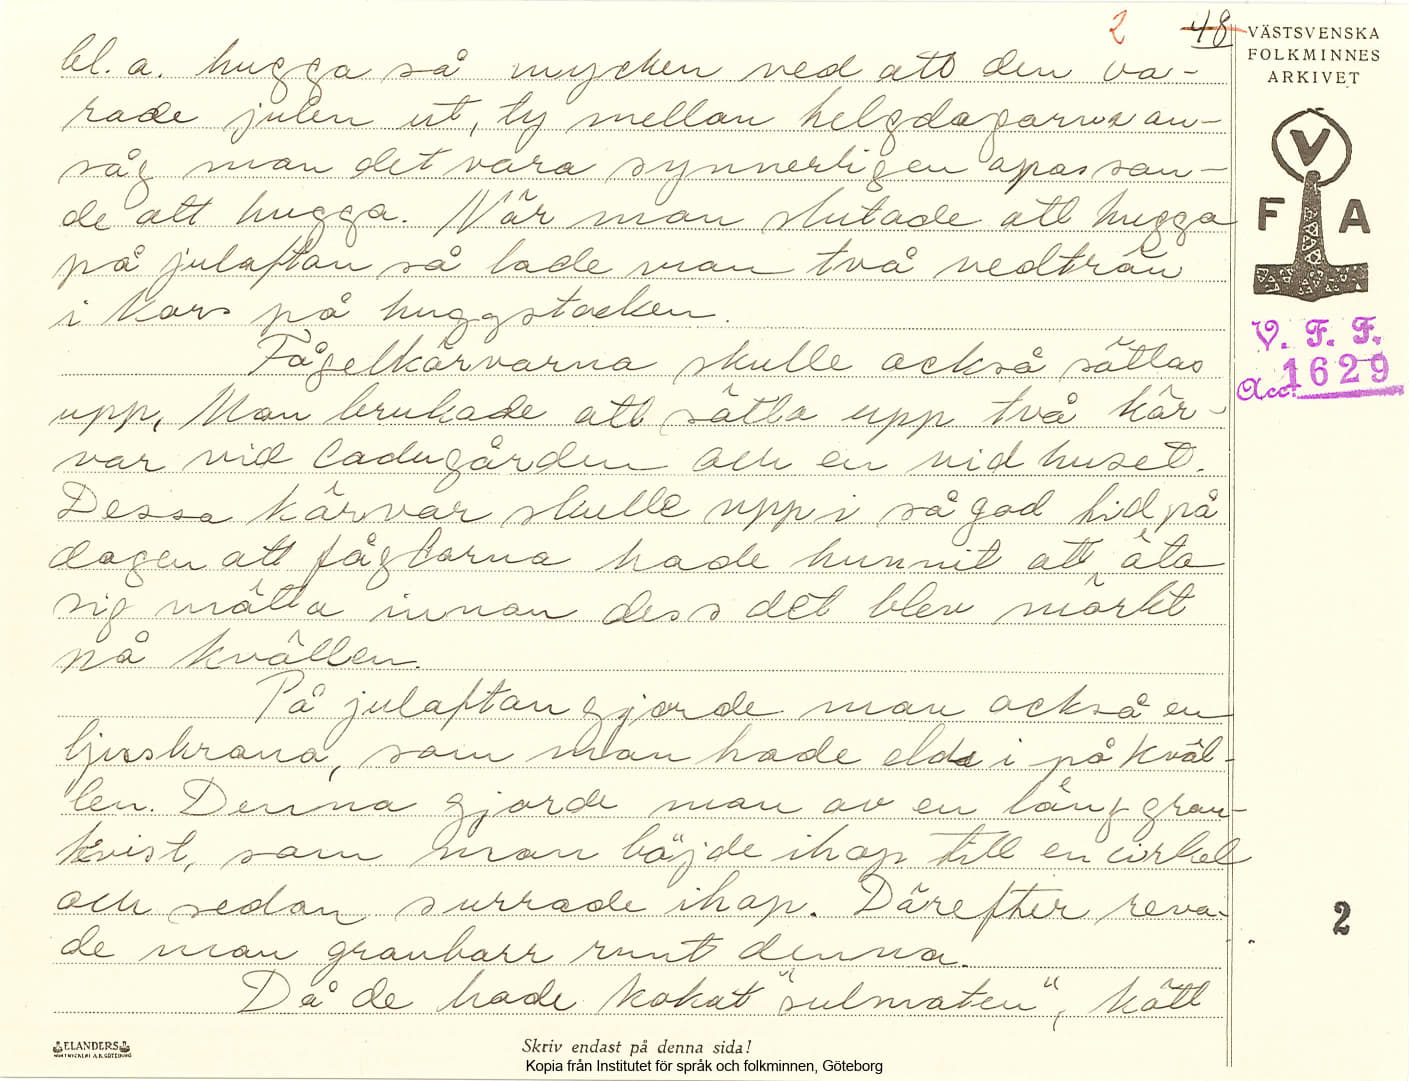 2 48
VÄSTSVENSKA
FOLKMINNES
ARKIVET
V
F A
V. F. F.
Acc. 1629
bl. a. hugga så mycken ved att den va-
rade julen ut, ty mellan helgdagarna an-
såg man det vara synnerligen opassan-
de att hugga. När man slutade att hugga
på julaftan så lade man två vedträn
i kors på huggstocken.
Fågelkärvarna skulle också sättas
upp, Man brukade att sätta upp två kär-
var vid ladugården och en vid huset.
Dessa kärvar skulle upp i så god tid på
dagen att fåglarna hade hunnit att äta
sig mätta innan dess det blev mörkt
på kvällen.
På julaftan gjorde man också en
ljuskrona, som man hade elda i på kväl-
len. Denna gjorde man av en lång gran-
kvist, som man böjde ihop till en cirkel
och sedan surrade ihop. Därefter reva-
de man granbarr runt denna.
Då de hade kokat "sulmaten", kött
2
ELANDERS
Skriv endast på denna sida!
Kopia från Institutet för språk och folkminnen, Göteborg